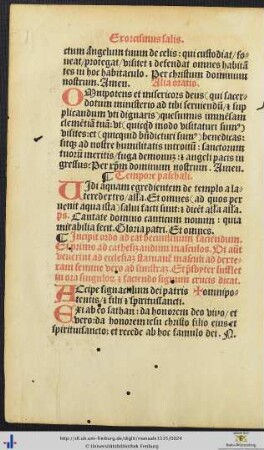 Exorcismus salis.
ctum Angelum tuum de celis: qui custodiat/ fo-
ueat/ protegat/ visitet ⁊ defendat omnes habitā
tes in hoc habitaculo. Per christum dominum
nostrum. Amen. Alia oratio.
OMnipotens et misericors deus (qui sacer-
dotum ministerio ad tibi seruiendū/ ⁊ sup
plicandum vti dignaris) quesumus immēsam
clemētiā tuā: vt (quicqd modo visitatur sumꝰ)
visites: et (quicquid bn̄dicturi sumꝰ) benedicas:
sitqꝫ ad nostre humilitatis introitū: sanctorum
tuorū meritis/ fuga demonuꝫ: ⁊ angeli pacis in
gressus. Per xp̄m dominum nostrum. Amen.
¶ Tempore paschali.
VIdi aquam egredientem de templo a la-
tere dextro/ alla. Et omnes (ad quos per
uenit aqua ista) salui facti sunt: ⁊ dicēt alla alla.
ps. Cantate domino canticum nouum: quia
mirabilia fecit. Gloria patri. Et omnes.
¶ Incipit ordo ad cathecuminum faciendum.
Et primo ad cathesisandum masculos. Vt aūt
venerint ad ecclesiā: stant masculi ad dex-
teram femine vero ad sinistrā. Et p̄sbyter sufflet
in ora singulorꝫ ⁊ faciendo signum crucis dicat.
ACcipe signaculum dei patris ✠ omnipo-
tentis/ ⁊ filii ⁊ spiritussancti.
EXi ab eo sathan: da honorem deo viuo/ et
vero: da honorem iesu christo filio eius et
spirituisancto: et recede ab hoc famulo dei. N.
http://dl.ub.uni-freiburg.de/diglit/manuale1521/0024
© Universitätsbibliothek Freiburg
Baden-Württemberg